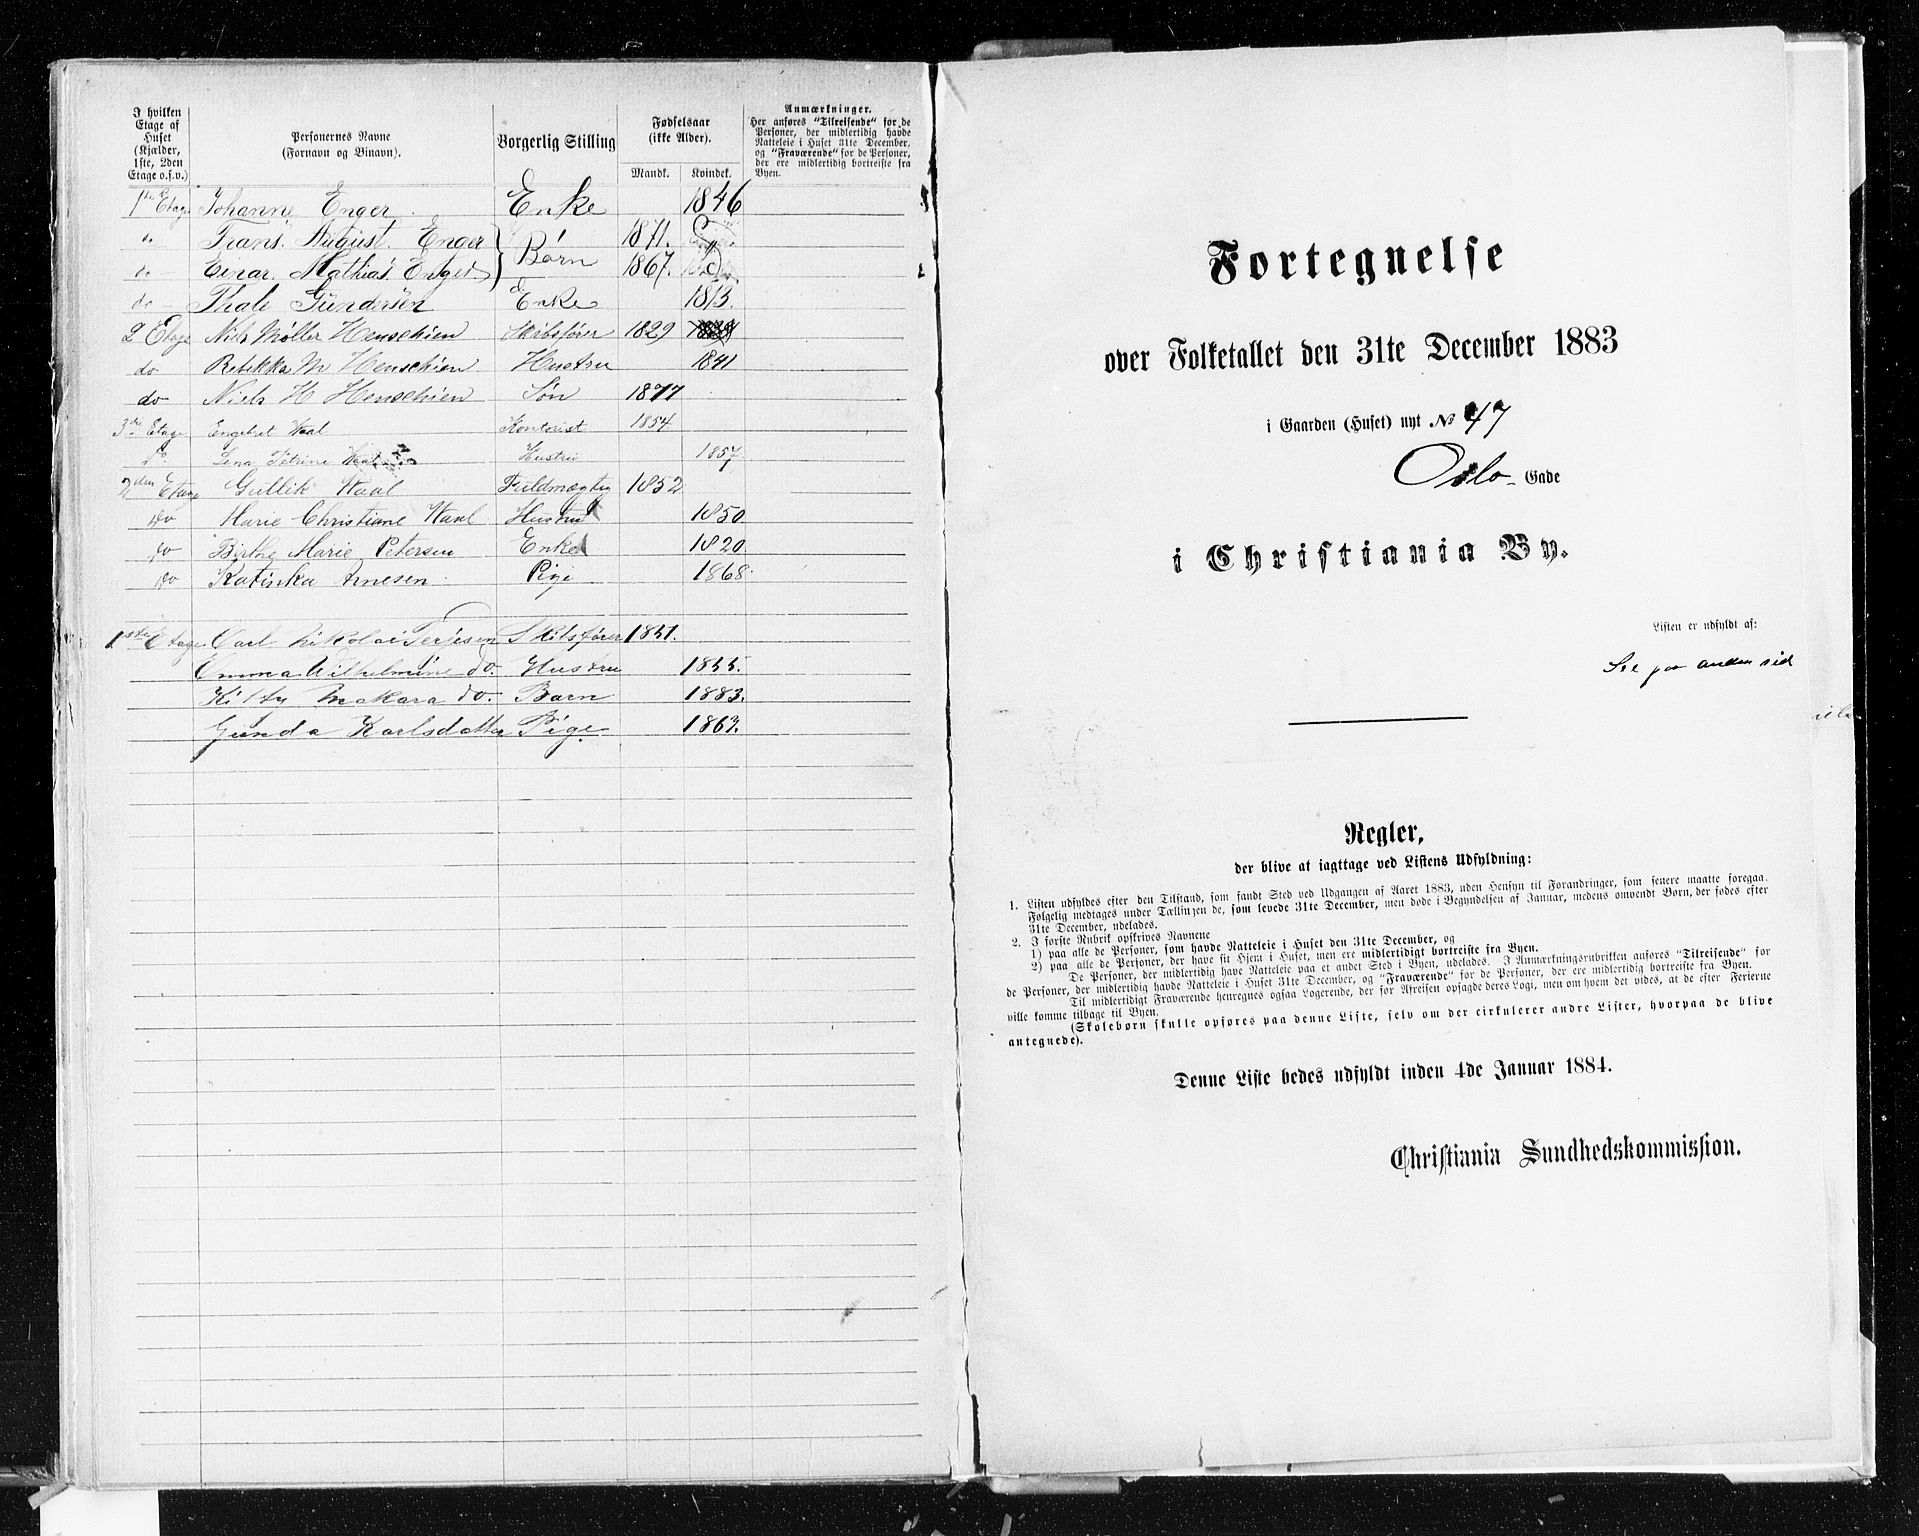 I hvilken Etage af Huset (Kjælder, 1ste, 2den Etage o.s.v.) | Personernes Navne (Fornavn og Binavn). | Borgerlig Stilling | Fødselsaar (ikke Alder). Mandk. Kvindek. | Anmærkninger. Her anføres "Tilreisende" for de Personer, der midlertidig havde Natteleie i Huset 31te December, og "Fraværende" for de Personer, der ere midlertidig bortreiste fra Byen.
1ste Etage Johanne Enger Enke 1846
do Frans August Enger } Børn 1871.
do Einar Mathias Enger 1867.
do Thale Gundersen Enke 1813.
2 Etage Niels Møller Henschien Skibsfører 1829
do Rebekka M Henschien Hustru 1841
do Niels H Henschien Søn 1877
3die Etage Engebret Waal Kontorist 1854
do Lena Petrine Waal Hustru 1857
2den Etage Gullik Waal Fuldmægtig 1852
do Marie Christiane Waal Hustru 1850.
do Birthe Marie Petersen Enke 1820.
do Katinka Arnesen Pige 1868.
1ste Etage Carl Nikolai Terjesen Skibsfører 1851.
Emma Wilhelmine do. Hustru 1855.
Kitty Makara do. Barn 1883.
Gunda Karlsdatter Pige 1863.
Fortegnelse
over Folketallet den 31te December 1883
i Gaarden (Huset) nyt No 47
Oslo Gade
i Christiania By.
Listen er udfyldt af:
See paa anden sid
Regler,
der blive at iagttage ved Listens Udfyldning:
1. Listen udfyldes efter den Tilstand, som fandt Sted ved Udgangen af Aaret 1883, uden Hensyn til Forandringer, som senere maatte foregaa.
Følgelig medtages under Tællingen de, som levede 31te December, men døde i Begyndelsen af Januar, medens omvendt Børn, der fødes efter
31te December, udelades.
2. I første Rubrik opskrives Navnene
1) paa alle de Personer, som havde Natteleie i Huset den 31te December, og
2) paa alle de Personer, der have sit Hjem i Huset, men ere midlertidigt bortreiste fra Byen.
De Personer, der midlertidig have Natteleie paa et andet Sted i Byen, udelades. I Anmærkningsrubrikken anføres "Tilreisende" for
de Personer, der midlertidig havde Natteleie i Huset 31te December, og "Fraværende" for de Personer, der ere midlertidig bortreiste fra Byen.
Til midlertidigt Fraværende henregnes ogsaa Logerende, der før Afreisen opsagde deres Logi, men om hvem det vides, at de efter Ferierne
ville komme tilbage til Byen.
(Skolebørn skulle opføres paa denne Liste, selv om der cirkulerer andre Lister, hvorpaa de blive
antegnede).
Denne Liste bedes udfyldt inden 4de Januar 1884.
Christiania Sundhedskommission.